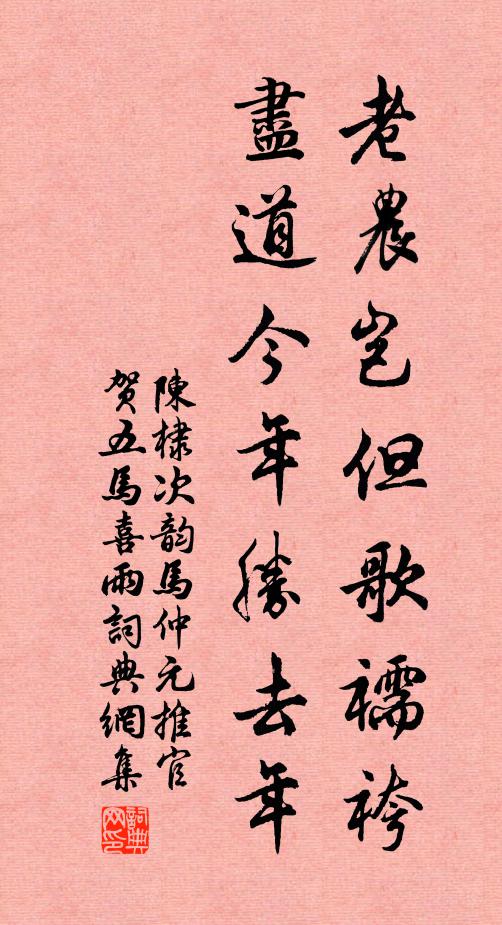 老農豈但歌襦袴
盡道今年勝去年
陳棣次韵馬仲元推官
賀五馬喜雨詞典網集
詞典
网印